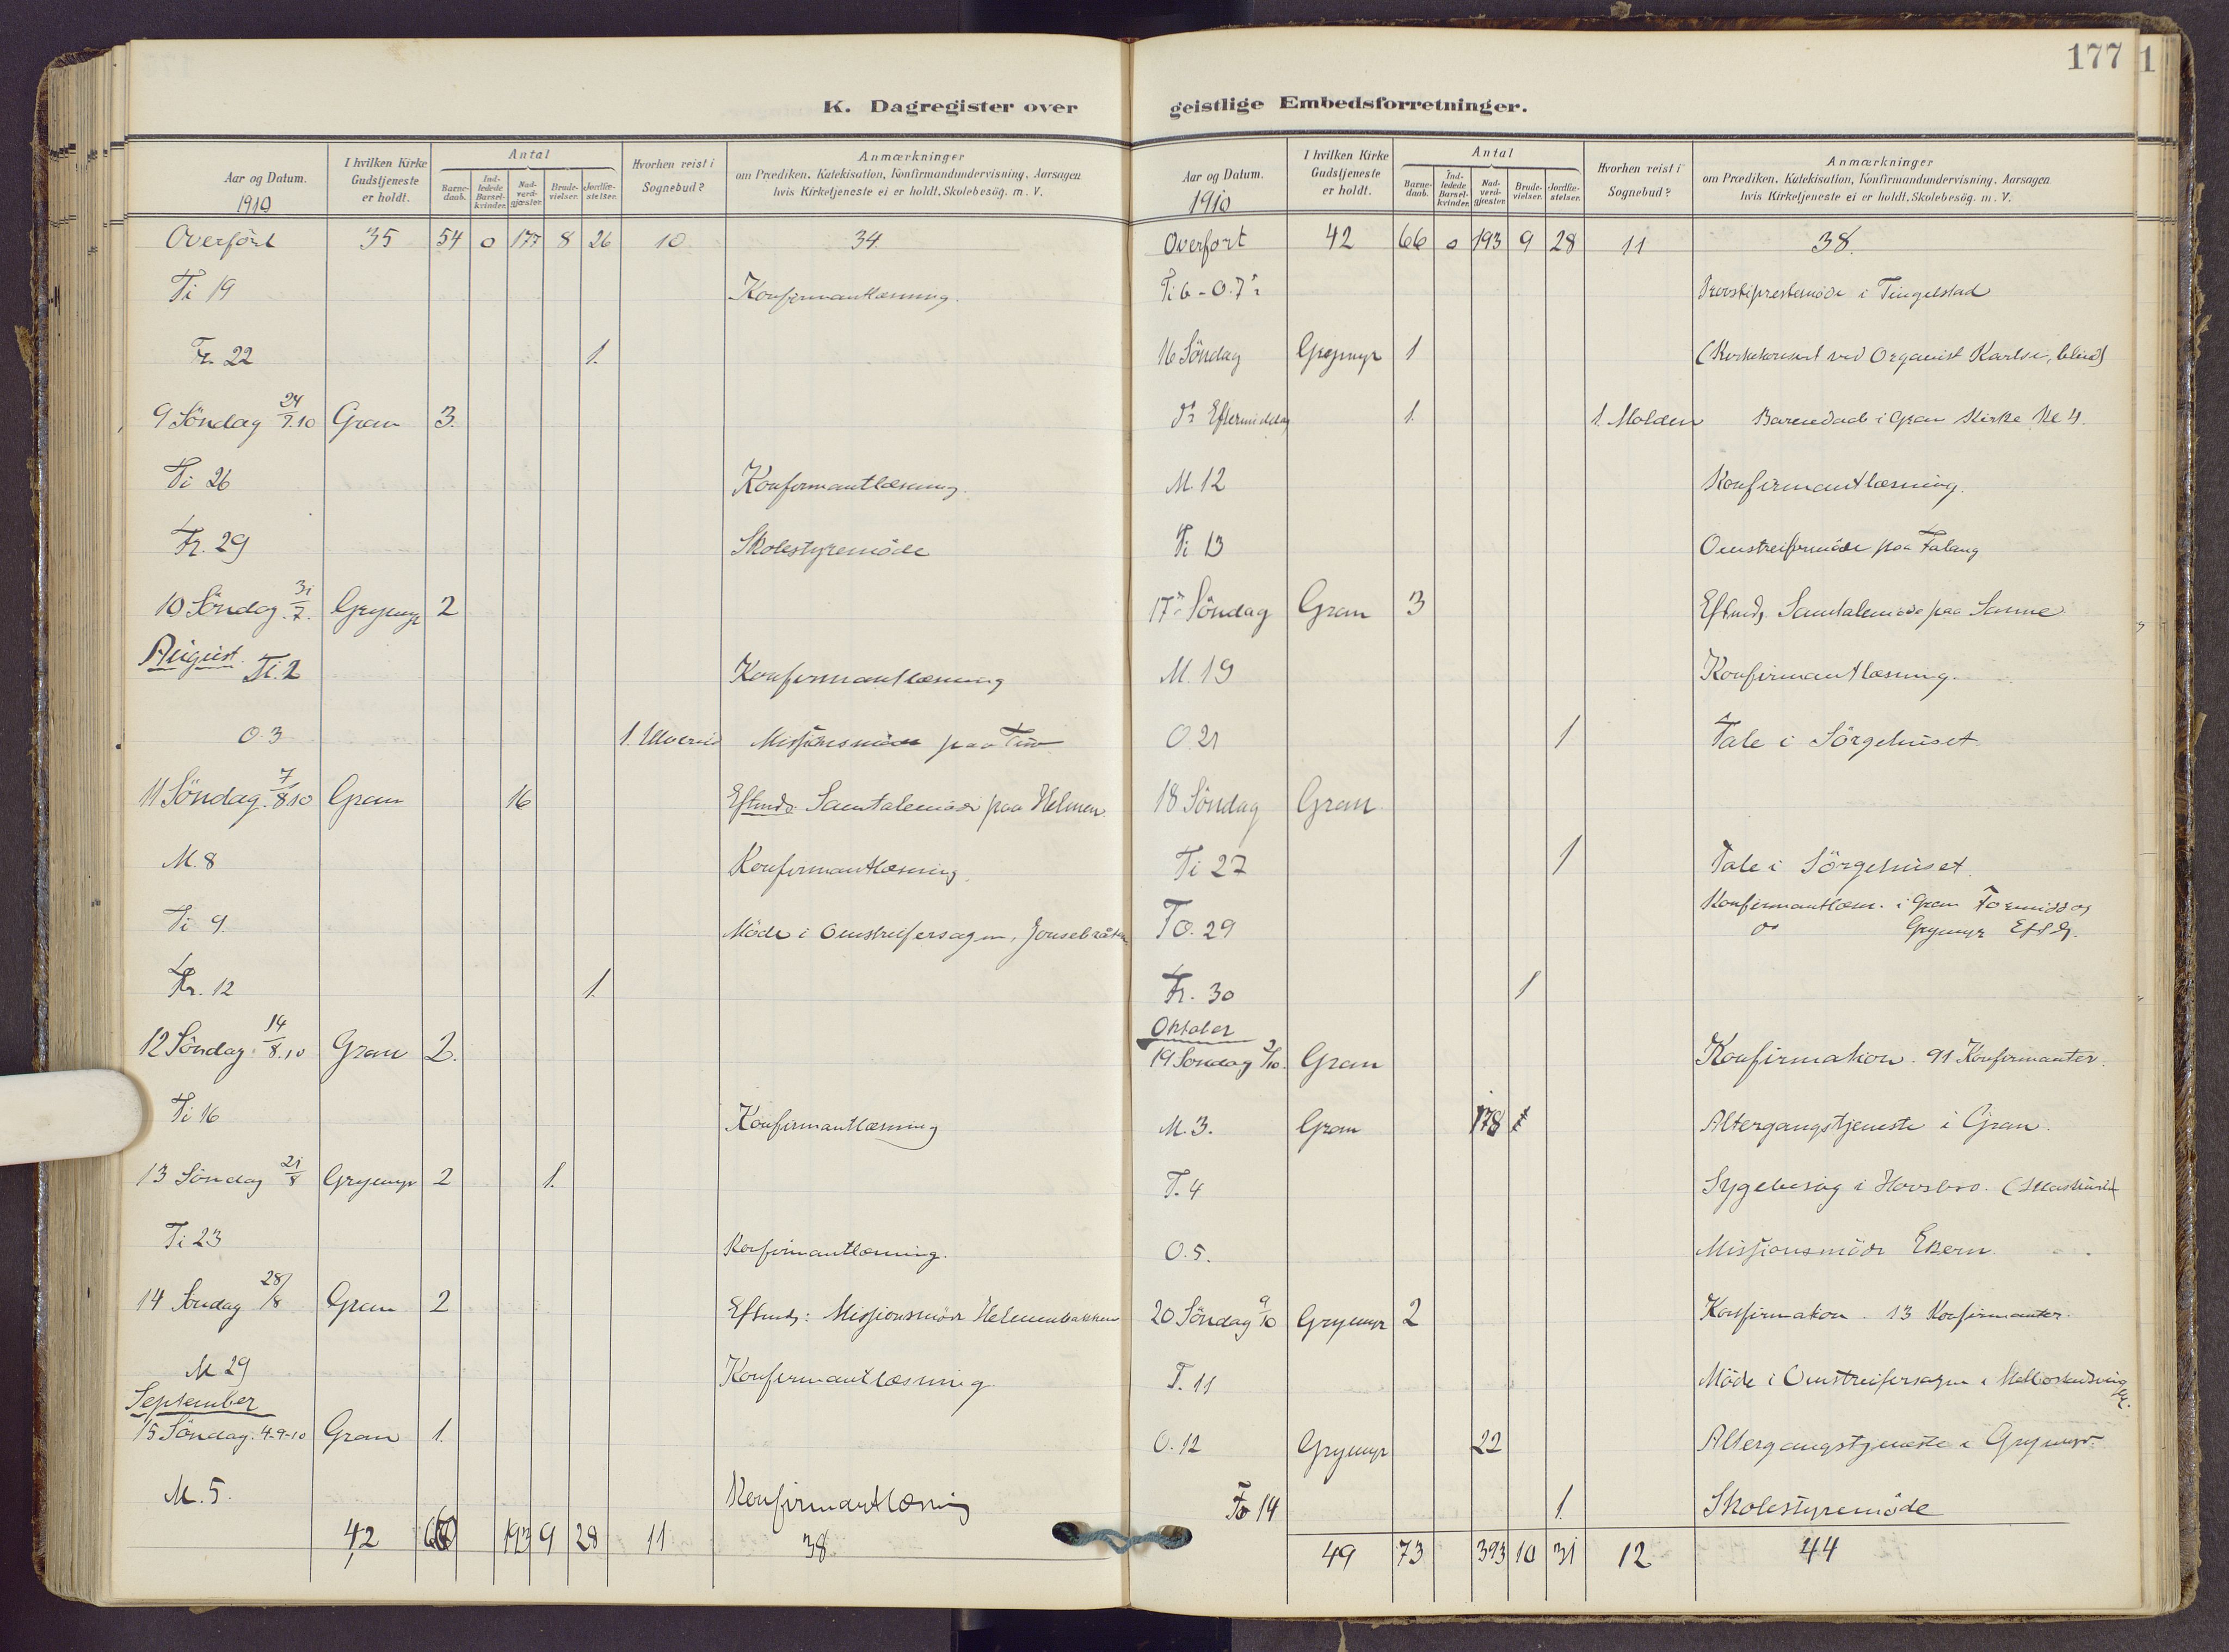 177
1
K. Dagregister over
geistlige Embedsforretninger.
Aar og Datum. 1910
I hvilken Kirke Gudstjeneste er holdt.
Antal
Barnedaab.
Indledede Barselkvinder.
Nadverdgjæster.
Brudevielser.
Jordfæstelser.
Hvorhen reist i Sognebud?
Anmærkninger
om Prædiken, Katekisation, Konfirmandundervisning, Aarsagen
hvis Kirketjeneste ei er holdt, Skolebesög. m. V.
Overfört 35 54 0 177 8 26 10 34
Ti 19 Konfirmantlæsning.
Fr. 22 1.
9 Söndag 24/7.10 Gran 3.
Ti 26 Konfirmantlæsning.
Fr. 29 Skolestyremöde
10 Söndag. 31/7. Grymyr 2
August. Ti. 2 Konfirmantlæsning
O. 3 1. Missionsmöde paa
11 Söndag. 7/8.10 Gran 16 Eftmd. Samtalemöde paa Helmen.
M. 8 Konfirmantlæsning.
Ti 9. Möde i Omstreifersagen,
Fr. 12 1.
12 Söndag. 14/8.10 Gran 2.
Ti 16 Konfirmantlæsning
13 Söndag 21/8 Grymyr 2 1.
Ti 23 Konfirmantlæsning.
14 Söndag 28/8 Gran 2 Eftmd: Missionsmöde Helmenbakken
M 29 Konfirmantlæsning
September
15 Söndag. 4-9-10 Gran 1.
M. 5. Konfirmantlæsning
42 66 193 9 28 11 38.
Aar og Datum. 1910
I hvilken Kirke Gudstjeneste er holdt.
Antal
Barnedaab.
Indledede Barselkvinder.
Nadverdgjæster.
Brudevielser.
Jordfæstelser.
Hvorhen reist i Sognebud?
Anmærkninger
om Prædiken, Katekisation, Konfirmandundervisning, Aarsagen
hvis Kirketjeneste ei er holdt, Skolebesög. m. V.
Overfört 42 66 0 193 9 28 11 38.
Ti 6 - O. 7 Provstiprestemöde i Tingelstad
16 Söndag Grymyr 1 (Kirkekonsert ved Organist Karlsen, blind)
Eftermiddag 1. 1. Molden Barnedaab i Gran Kirke Kl 4.
M. 12 Konfirmantlæsning.
Ti 13 Omstreifermöde paa Falang
17 Söndag Gran 3 Eftmd. Samtalemöde paa Sanne
M. 19 Konfirmantlæsning.
O. 21 1 Tale i Sörgehuset
18 Söndag Gran
Ti 27 1 Tale i Sörgehuset.
TO. 29 Konfirmantlæsn. i Gran Formiddag
do Grymyr Eftd.
Fr. 30 1
Oktober
19 Söndag 2/10. Gran Konfirmation. 91 Konfirmanter.
M. 3. Gran 178 Altergangstjeneste i Gran.
T. 4 Sygebesög i Hovsbro.
O. 5. Missionsmöde Ekern
20 Söndag 9/10 Grymyr 2 Konfirmation. 13 Konfirmanter.
T. 11 Möde i Omstreifersagen i
O. 12 Grymyr 22 Altergangstjeneste i Grymyr.
14 1. Skolestyremöde
49 73 393 10 31 12 44